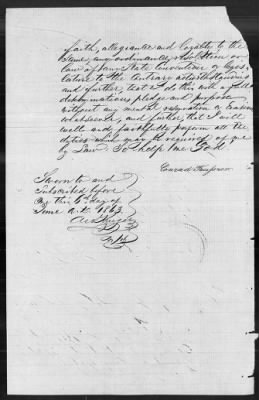 faith, allegiance and loyalty to the
same, any ordinance, resolution or
law of any State Convention or Legis-
lature to the Contrary notwithstanding
and further, that I do this with a full
determination, pledge and purpose
without any mental reservation or evasion
whatsoever, and further that I will
well and faithfully perform all the
duties which may be required of me
by Law So help me God
Conrad
Sworn to and
Subscribed before
me this 6th day of
June A.D. 1863